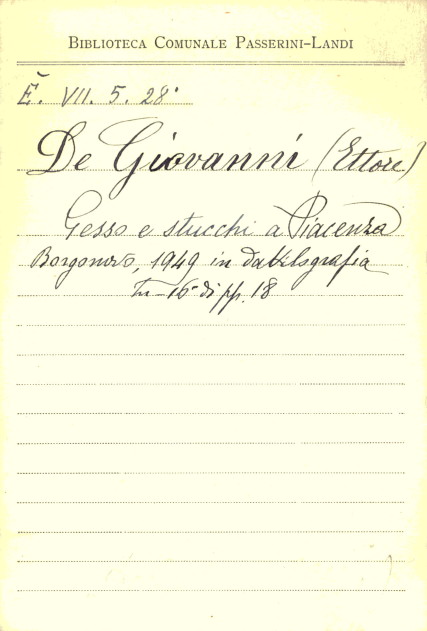 BIBLIOTECA COMUNALE PASSERINI-LANDI
Ě. VII. 5. 28°
De Giovanni (Ettore)
Gesso e stucchi a Piacenza
Borgonovo, 1949 in dattilografia
In-16° di pp. 18